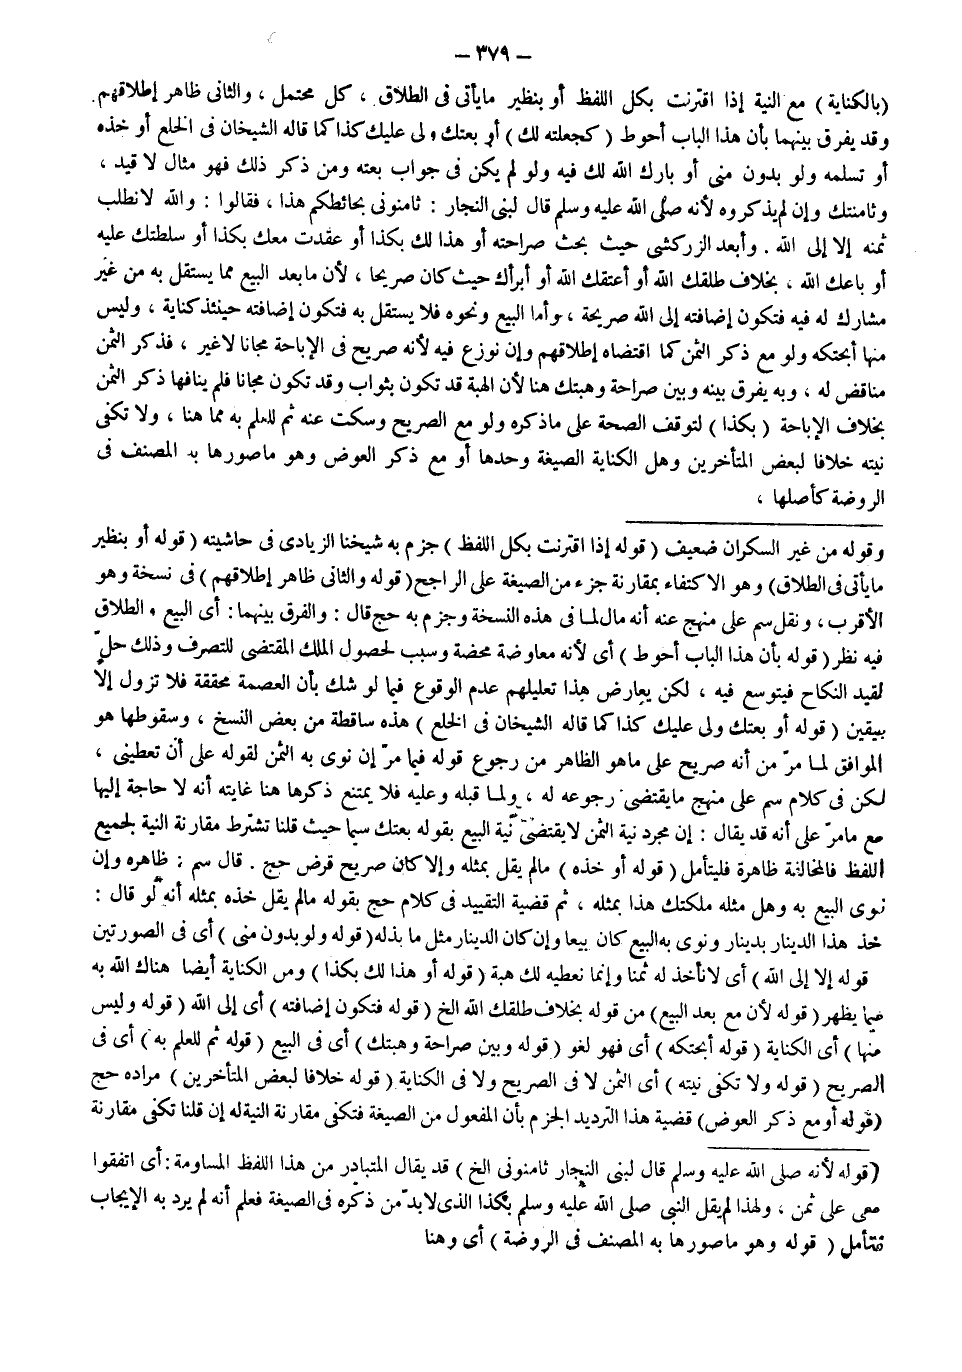 – ٣٧٩ –
(بالكناية) مع النية إذا اقترنت بكل اللفظ أو بنظير مايأتى فى الطلاق ، كل محتمل ، والثانى ظاهر إطلاقهم.
وقد يفرق بينهما بأن هذا الباب أحوط ( كجعلته لك ) أو بعتك ولى عليك كذا كما قاله الشيخان فى الخلع أو خذه
أو تسلمه ولو بدون منى أو بارك الله لك فيه ولو لم يكن فى جواب بعته ومن ذكر ذلك فهو مثال لا قيد ،
وثامنتك وإن لم يذكروه لأنه صلى الله عليه وسلم قال لبنى النجار : ثامنونى بحائطكم هذا ، فقالوا : والله لا نطلب
ثمنه إلا إلى الله . وأبعد الزركشى حيث بحث صراحته أو هذا لك بكذا أو عقدت معك بكذا أو سلطتك عليه
أو باعك الله ، بخلاف طلقك الله أو أعتقك الله أو أبرأك حيث كان صريحا ، لأن مابعد البيع مما يستقل به من غير
مشارك له فيه فتكون إضافته إلى الله صريحة ، وأما البيع ونحوه فلا يستقل به فتكون إضافته حينئذ كناية ، وليس
منها أبحتكه ولو مع ذكر الثمن كما اقتضاه إطلاقهم وإن نوزع فيه لأنه صريح فى الإباحة مجانا لاغير ، فذكر الثمن
مناقض له ، وبه يفرق بينه وبين صراحة وهبتك هنا لأن الهبة قد تكون بثواب وقد تكون مجانا فلم ينافها ذكر الثمن
بخلاف الإباحة ( بكذا ) لتوقف الصحة على ماذكره ولو مع الصريح وسكت عنه ثم للعلم به مما هنا ، ولا تكفى
نيته خلافا لبعض المتأخرين وهل الكناية الصيغة وحدها أو مع ذكر العوض وهو ماصورها به المصنف فى
الروضة كأصلها ،
وقوله من غير السكران ضعيف ( قوله إذا اقترنت بكل اللفظ ) جزم به شيخنا الزيادى فى حاشيته ( قوله أو بنظير
مايأتى فى الطلاق) وهو الاكتفاء بمقارنة جزء من الصيغة على الراجح(قوله والثانى ظاهر إطلاقهم) فى نسخة وهو
الأقرب ، ونقل سم على منهج عنه أنه مال لما فى هذه النسخة وجزم به حج قال : والفرق بينهما: أى البيع والطلاق
فيه نظر ( قوله بأن هذا الباب أحوط ) أى لأنه معاوضة محضة وسبب لحصول الملك المقتضى للتصرف وذلك حلّ
لقيد النكاح فيتوسع فيه ، لكن يعارض هذا تعليلهم عدم الوقوع فيما لو شك بأن العصمة محققة فلا تزول إلا
بيقين ( قوله أو بعتك ولى عليك كذا كما قاله الشيخان فى الخلع ) هذه ساقطة من بعض النسخ ، وسقوطها هو
الموافق لما مرّ من أنه صريح على ماهو الظاهر من رجوع قوله فيما مرّ إن نوى به الثمن لقوله على أن تعطينى ،
لكن فى كلام سم على منهج مايقتضى رجوعه له ، ولما قبله وعليه فلا يمتنع ذكرها هنا غايته أنه لا حاجة إليها
مع مامرّ على أنه قد يقال : إن مجرد نية الثمن لايقتضى نية البيع بقوله بعتك سيما حيث قلنا تشترط مقارنة النية لجميع
اللفظ فالمخالفة ظاهرة فليتأمل ( قوله أو خذه ) مالم يقل بمثله وإلا كان صريح قرض حج . قال سم : ظاهره وإن
نوى البيع به وهل مثله ملكتك هذا بمثله ، ثم قضية التقييد فى كلام حج بقوله مالم يقل خذه بمثله أنه لو قال :
خذ هذا الدينار بدينار ونوى به البيع كان بيعا وإن كان الدينار مثل ما بذله (قوله ولو بدون منى ) أى فى الصورتين
قوله إلا إلى الله ) أى لا نأخذ له ثمنا وإنما نعطيه لك هبة ( قوله أو هذا لك بكذا ) ومن الكناية أيضا هناك الله به
فيما يظهر ( قوله لأن مع بعد البيع) من قوله بخلاف طلقك الله الخ ( قوله فتكون إضافته ) أى إلى الله ( قوله وليس
منها ) أى الكناية ( قوله أبحتكه ) أى فهو لغو ( قوله وبين صراحة وهبتك) أى فى البيع ( قوله ثم للعلم به ) أى فى
الصريح ( قوله ولا تكفى نيته ) أى الثمن لا فى الصريح ولا فى الكناية ( قوله خلافا لبعض المتأخرين ) مراده حج
(قوله أو مع ذكر العوض) قضية هذا الترديد الجزم بأن المفعول من الصيغة فتكفى مقارنة النية له إن قلنا تكفى مقارنة
(قوله لأنه صلى الله عليه وسلم قال لبنى النجار ثامنونى الخ ) قد يقال المتبادر من هذا اللفظ المساومة : أى اتفقوا
معى على ثمن ، ولهذا لم يقل النبى صلى الله عليه وسلم بكذا الذى لابدّ من ذكره فى الصيغة فعلم أنه لم يرد به الإيجاب
فتأمل ( قوله وهو ماصورها به المصنف فى الروضة ) أى وهنا